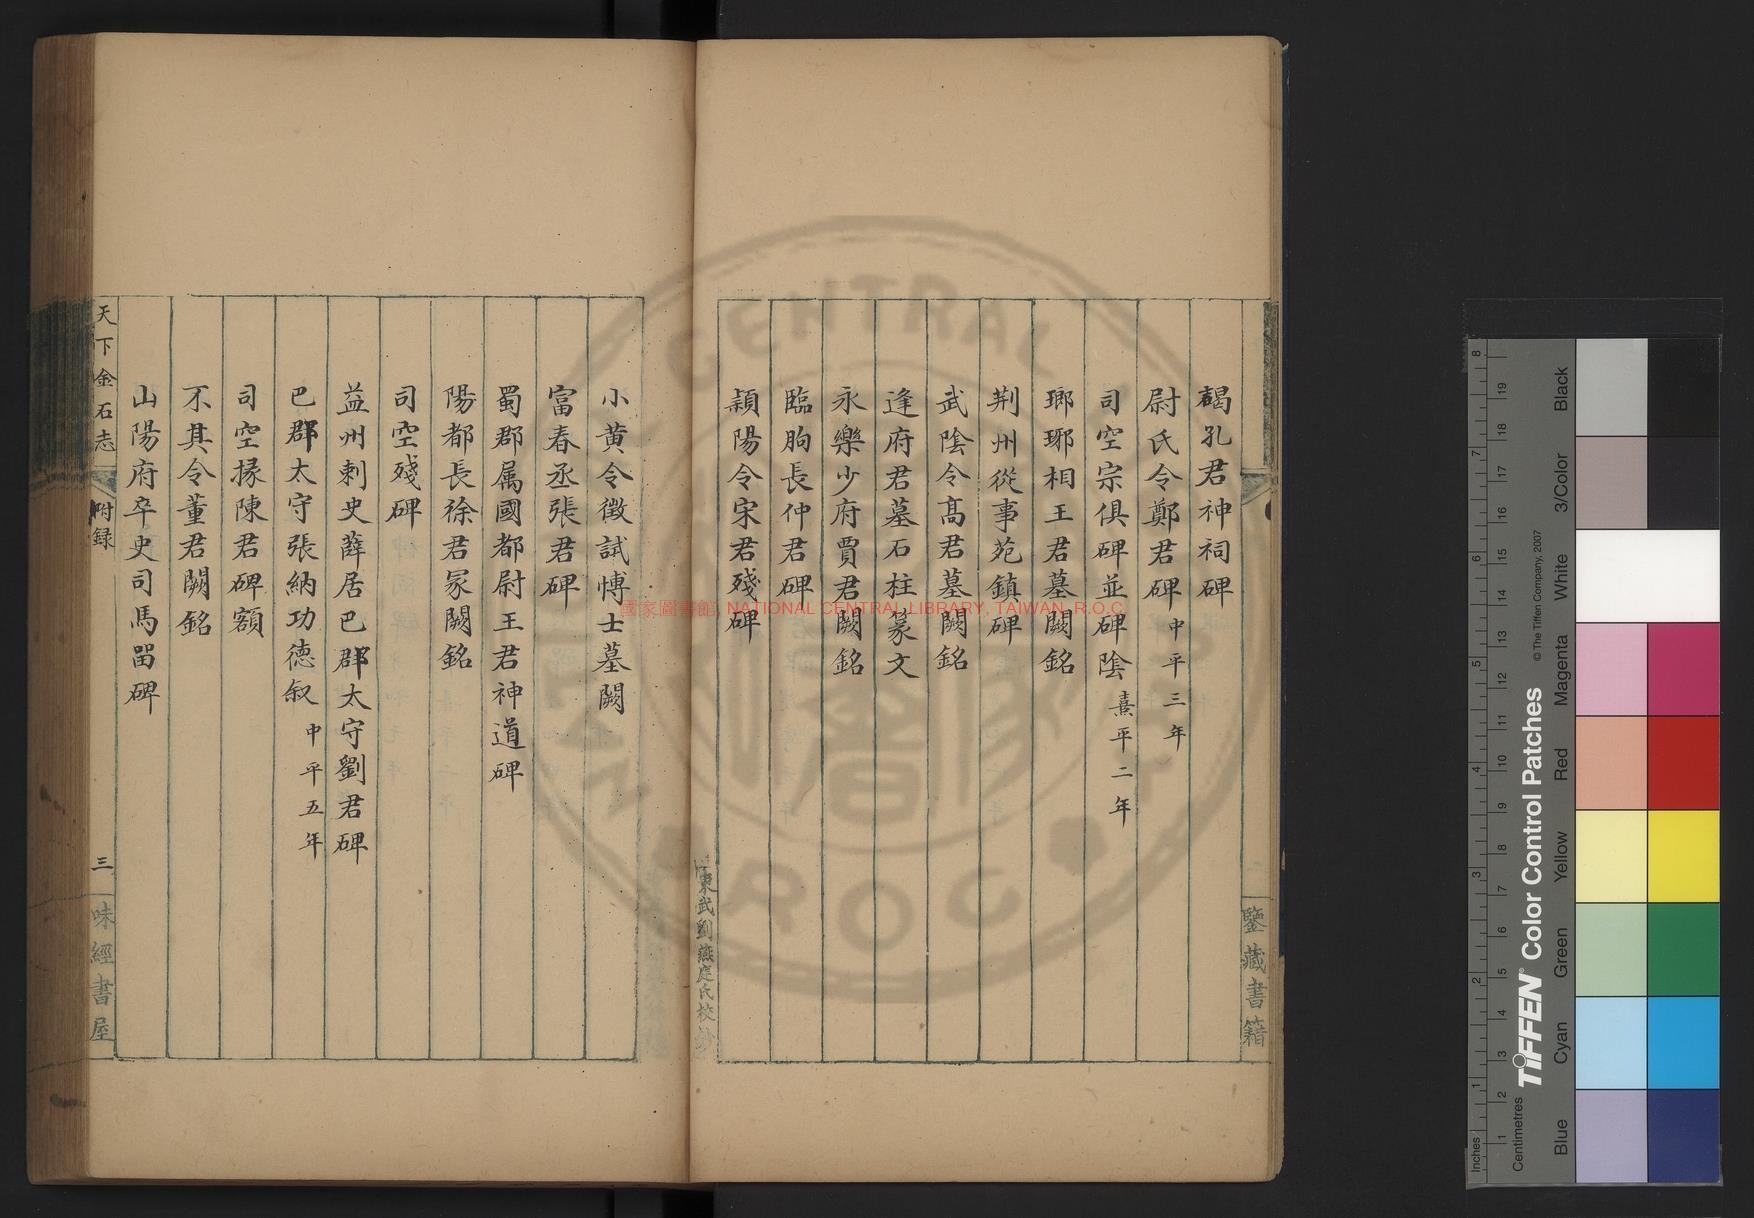 謁孔君神祠碑
尉氏令鄭君碑 中平三年
司空宗俱碑並碑陰 熹平二年
瑯琊相王君墓闕銘
荆州從事苑鎮碑
武陰令髙君墓闕銘
逢府君墓石柱篆文
永樂少府賈君闕銘
臨朐長仲君碑
潁陽令宋君殘碑
鑒藏書籍
東武劉燕庭氏校鈔
小黄令徴試博士墓闕
富春丞張君碑
蜀郡属國都尉王君神道碑
陽都長徐君冢闕銘
司空殘碑
益州刺史薛居巴郡太守劉君碑
巴郡太守張納功德叙 中平五年
司空掾陳君碑額
不其令董君闕銘
山陽府卒史司馬畱碑
天下金石志 附録 三 味經書屋
國家圖書館, NATIONAL CENTRAL LIBRARY, TAIWAN, R.O.C.
CENTRAL
R.O.C.
TIFFEN® Color Control Patches
© The Tiffen Company, 2007
Centimetres
Inches
Blue Cyan Green Yellow Red Magenta White 3/Color Black